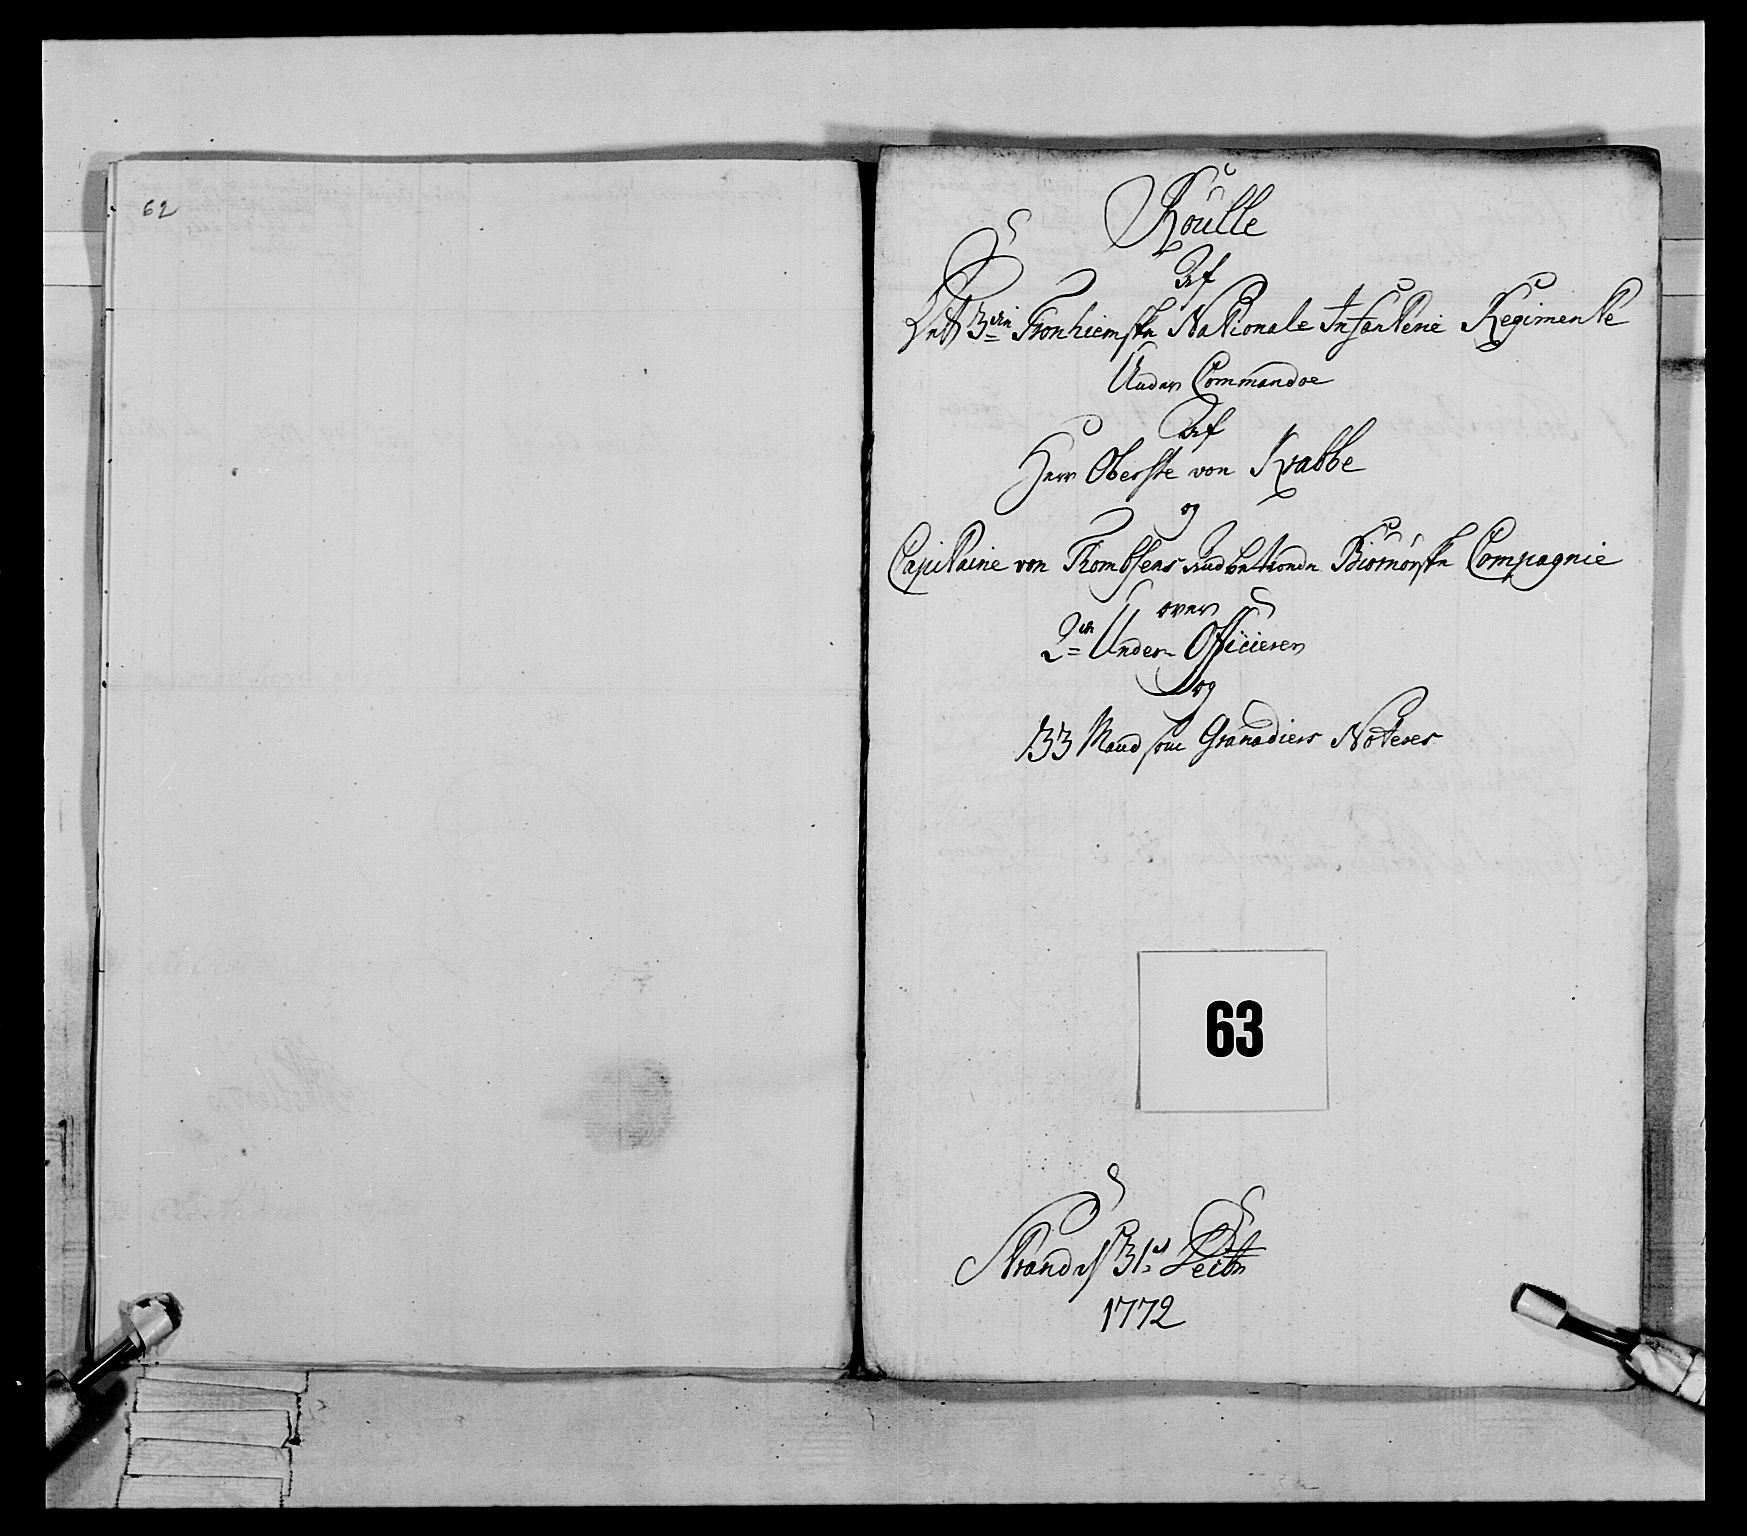 62
Roulle
Af
Dett 3die Tronhiemske Nationale Infanterie Regimente
Under Commandoe
Af
Herr Oberste von Krabbe
og
Capitaine von Trombsens Biornørske Compagnie
over
2de Under Officierer
og
33 Mand som Granadiers Noteres
63
Strand d 31te Decbr
1772